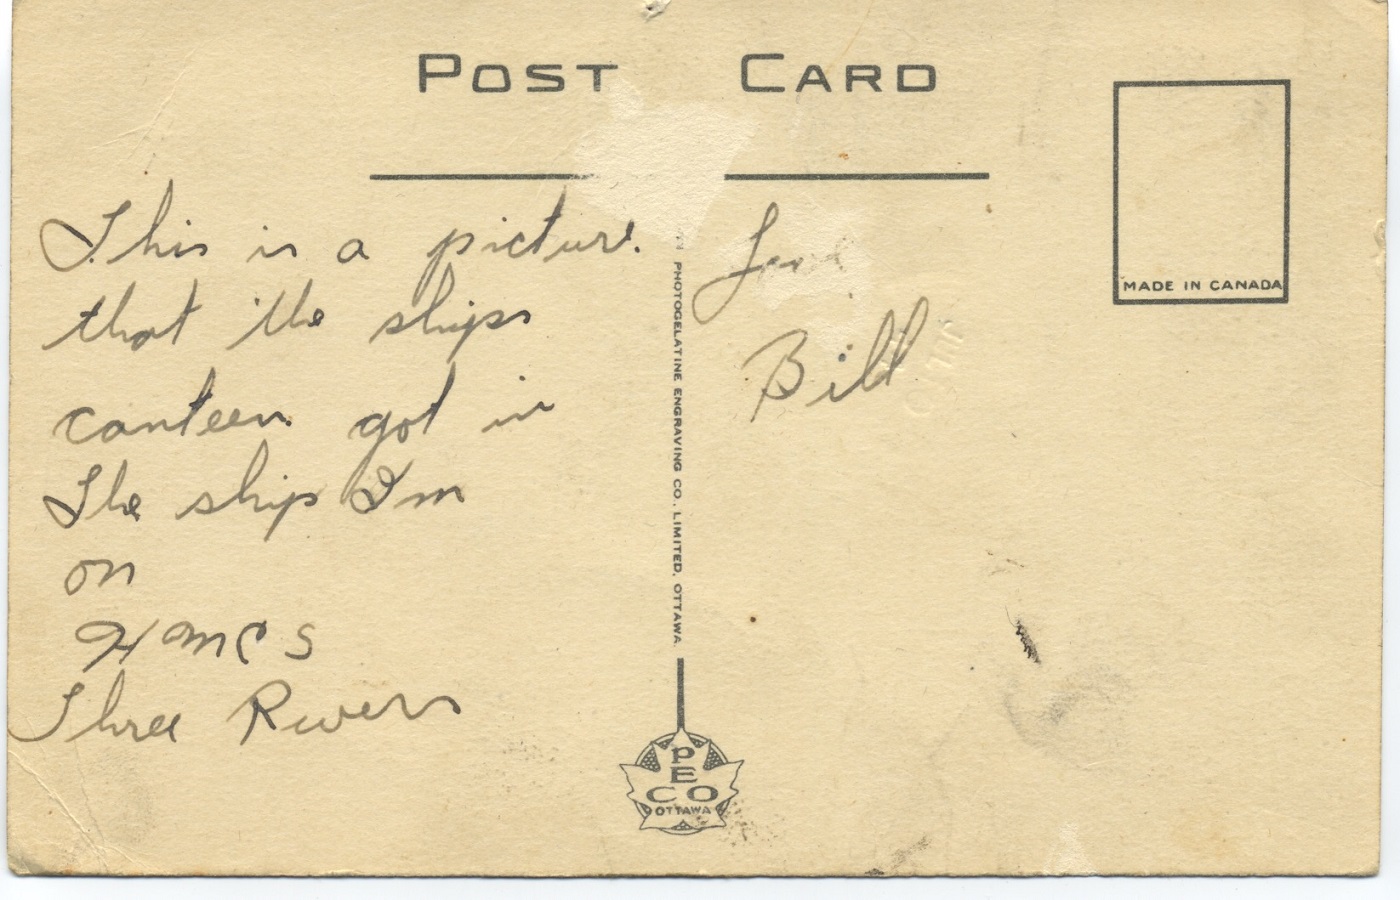 POST CARD
This is a picture
that the ships
canteen got in
The ship I'm
on
HMCS
Three Rivers
Love
Bill
PHOTOGELATINE ENGRAVING CO. LIMITED, OTTAWA
MADE IN CANADA
PECO
OTTAWA